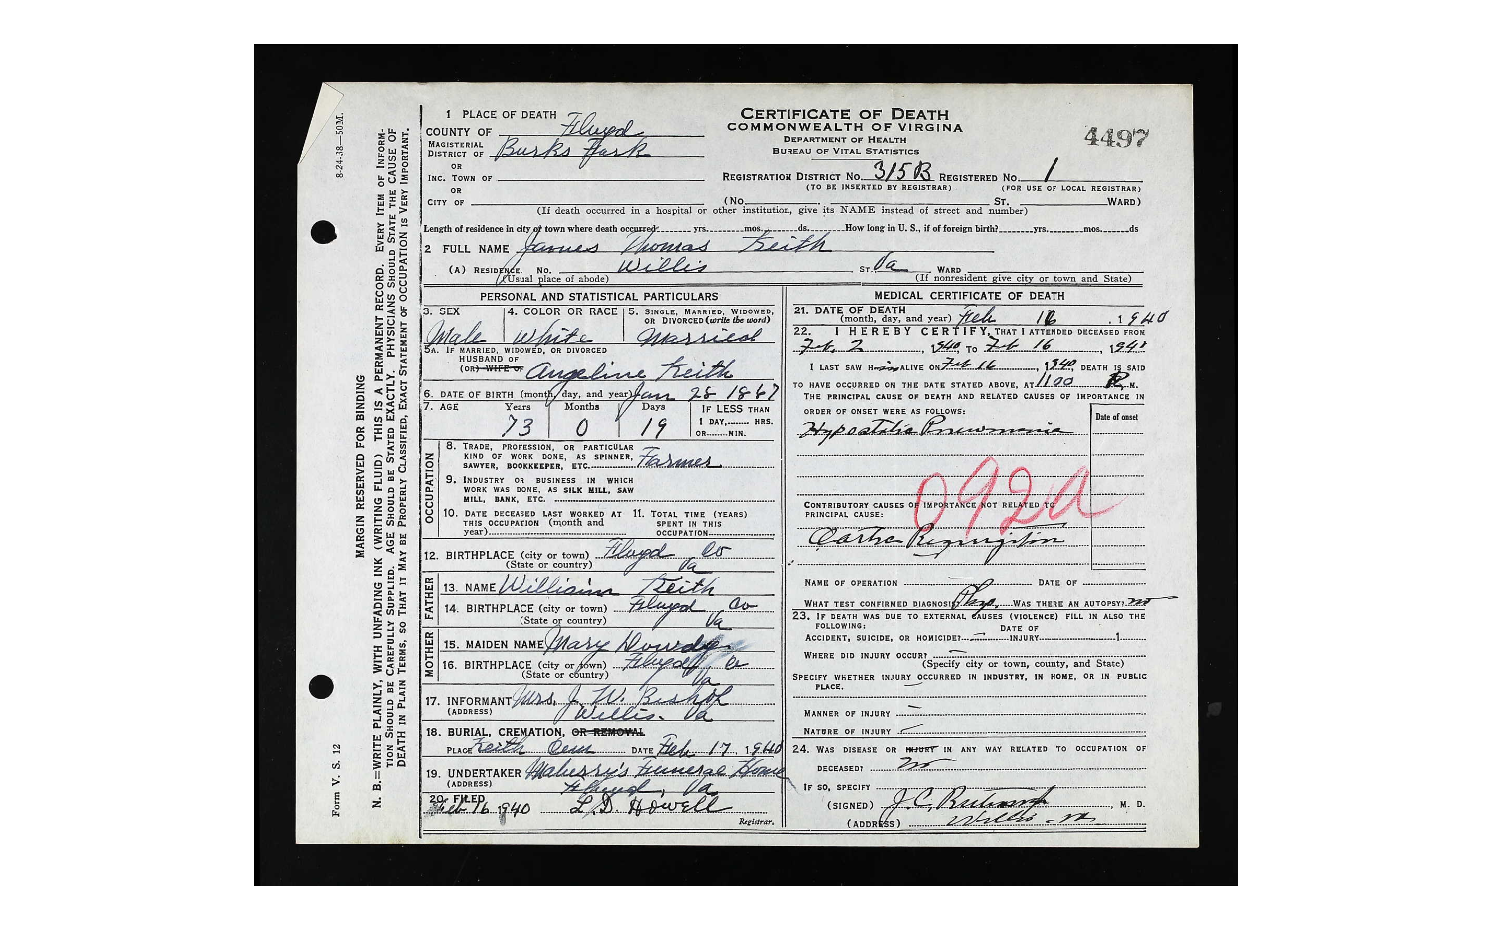 8-24-38—50M.
MARGIN RESERVED FOR BINDING
N. B.—WRITE PLAINLY, WITH UNFADING INK (WRITING FLUID) THIS IS A PERMANENT RECORD. EVERY ITEM OF INFORM-
TION SHOULD BE CAREFULLY SUPPLIED. AGE SHOULD BE STATED EXACTLY. PHYSICIANS SHOULD STATE THE CAUSE OF
DEATH IN PLAIN TERMS, SO THAT IT MAY BE PROPERLY CLASSIFIED. EXACT STATEMENT OF OCCUPATION IS VERY IMPORTANT.
Form V. S. 12
CERTIFICATE OF DEATH
COMMONWEALTH OF VIRGINA
DEPARTMENT OF HEALTH
BUREAU OF VITAL STATISTICS
4497
1 PLACE OF DEATH
COUNTY OF Floyd
MAGISTERIAL DISTRICT OF Burks Fork
OR
INC. TOWN OF
OR
CITY OF
REGISTRATION DISTRICT NO. 315B REGISTERED NO. 1
(TO BE INSERTED BY REGISTRAR) (FOR USE OF LOCAL REGISTRAR)
(No. ST. WARD)
(If death occurred in a hospital or other institution, give its NAME instead of street and number)
Length of residence in city or town where death occurred yrs. mos. ds. How long in U. S., if of foreign birth? yrs. mos. ds
2 FULL NAME James Thomas Keith
(A) RESIDENCE. No. Willis ST. Va WARD
(Usual place of abode) (If nonresident give city or town and State)
PERSONAL AND STATISTICAL PARTICULARS
3. SEX Male
4. COLOR OR RACE White
5. SINGLE, MARRIED, WIDOWED, OR DIVORCED (write the word) Married
5A. IF MARRIED, WIDOWED, OR DIVORCED
HUSBAND OF
(OR) WIFE OF Angeline Keith
6. DATE OF BIRTH (month, day, and year) Jan 28 1867
7. AGE Years 73 Months 0 Days 19
IF LESS THAN
1 DAY, HRS.
OR MIN.
OCCUPATION
8. TRADE, PROFESSION, OR PARTICULAR
KIND OF WORK DONE, AS SPINNER,
SAWYER, BOOKKEEPER, ETC. Farmer
9. INDUSTRY OR BUSINESS IN WHICH
WORK WAS DONE, AS SILK MILL, SAW
MILL, BANK, ETC.
10. DATE DECEASED LAST WORKED AT
THIS OCCUPATION (month and
year)
11. TOTAL TIME (YEARS)
SPENT IN THIS
OCCUPATION
12. BIRTHPLACE (city or town) Floyd Co
(State or country) Va
FATHER
13. NAME William Keith
14. BIRTHPLACE (city or town) Floyd Co
(State or country) Va
MOTHER
15. MAIDEN NAME Mary
16. BIRTHPLACE (city or town) Floyd Co
(State or country) Va
17. INFORMANT Mrs. J. W. Bishop
(ADDRESS) Willis. Va
18. BURIAL, CREMATION, OR REMOVAL
PLACE Keith Cem DATE Feb 17, 1940
19. UNDERTAKER Maberry's Funeral Home
(ADDRESS) Floyd, Va
20. FILED Feb 16 1940 L. D. Howell
Registrar.
MEDICAL CERTIFICATE OF DEATH
21. DATE OF DEATH
(month, day, and year) Feb 16, 1940
22. I HEREBY CERTIFY, THAT I ATTENDED DECEASED FROM
Feb. 2, 1940, TO Feb 16, 1940
I LAST SAW H im ALIVE ON Feb 16, 1940, DEATH IS SAID
TO HAVE OCCURRED ON THE DATE STATED ABOVE, AT 1100 P. M.
THE PRINCIPAL CAUSE OF DEATH AND RELATED CAUSES OF IMPORTANCE IN
ORDER OF ONSET WERE AS FOLLOWS: Date of onset
Hypostatic Pneumonia
092a
CONTRIBUTORY CAUSES OF IMPORTANCE NOT RELATED TO
PRINCIPAL CAUSE:
NAME OF OPERATION DATE OF
WHAT TEST CONFIRMED DIAGNOSIS Phys. WAS THERE AN AUTOPSY? no
23. IF DEATH WAS DUE TO EXTERNAL CAUSES (VIOLENCE) FILL IN ALSO THE
FOLLOWING:
ACCIDENT, SUICIDE, OR HOMICIDE? — DATE OF INJURY 1
WHERE DID INJURY OCCUR? —
(Specify city or town, county, and State)
SPECIFY WHETHER INJURY OCCURRED IN INDUSTRY, IN HOME, OR IN PUBLIC
PLACE. —
MANNER OF INJURY —
NATURE OF INJURY —
24. WAS DISEASE OR INJURY IN ANY WAY RELATED TO OCCUPATION OF
DECEASED? no
IF SO, SPECIFY
(SIGNED) J. C. , M. D.
(ADDRESS) Willis